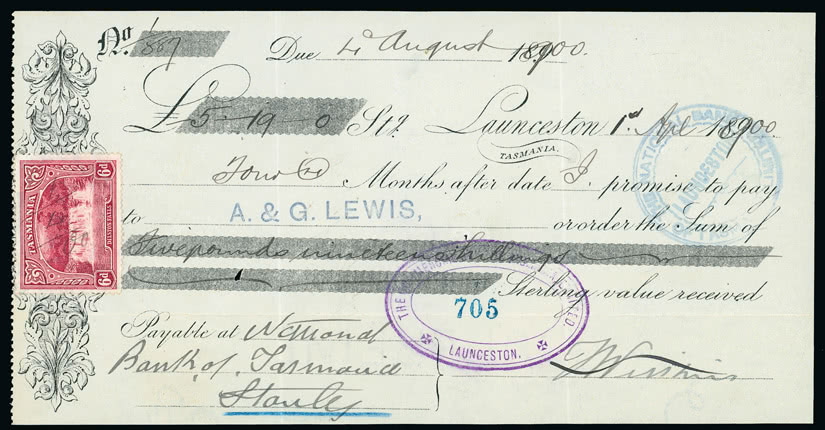 No. 887
Due 4 August 18900.
£ 5-19-0 Stg. Launceston 1st Apl 18900
TASMANIA.
Four Months after date I promise to pay
to A. & G. LEWIS, or order the Sum of
Five pounds nineteen shillings
Sterling value received
Payable at National
Bank of Tasmania
Stanley
TASMANIA
RUSSELL FALLS
6d 6d
NATIONAL BANK
LAUNCESTON
THE
705
LAUNCESTON.